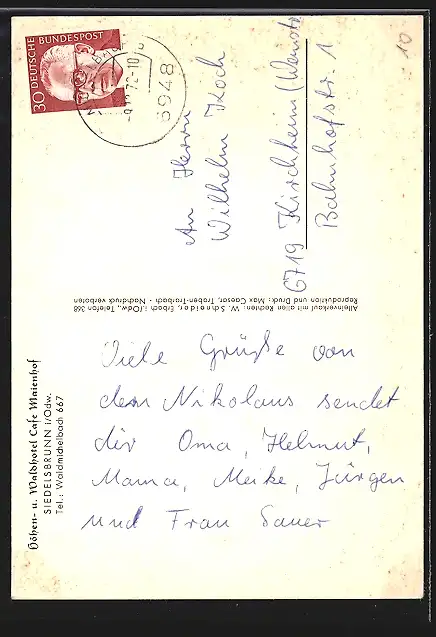 Viele Grüße von
dem Nikolaus sendet
dir Oma, Helmut,
Mama, Meike, Jürgen
und Frau Sauer
Höhen- u. Waldhotel Cafe Maienhof
SIEDELSBRUNN i/Odw.
Tel.: Waldmichelbach 667
Alleinverkauf mit allen Rechten: W. Schneider, Erbach i./Odw., Telefon 368
Reproduktion und Druck: Max Caesar, Traben-Trarbach · Nachdruck verboten
DEUTSCHE BUNDESPOST
30
72-10
6948
An Herrn
Wilhelm Koch
6719 Kirchheim (Weinstr
Bahnhofstr. 1
10